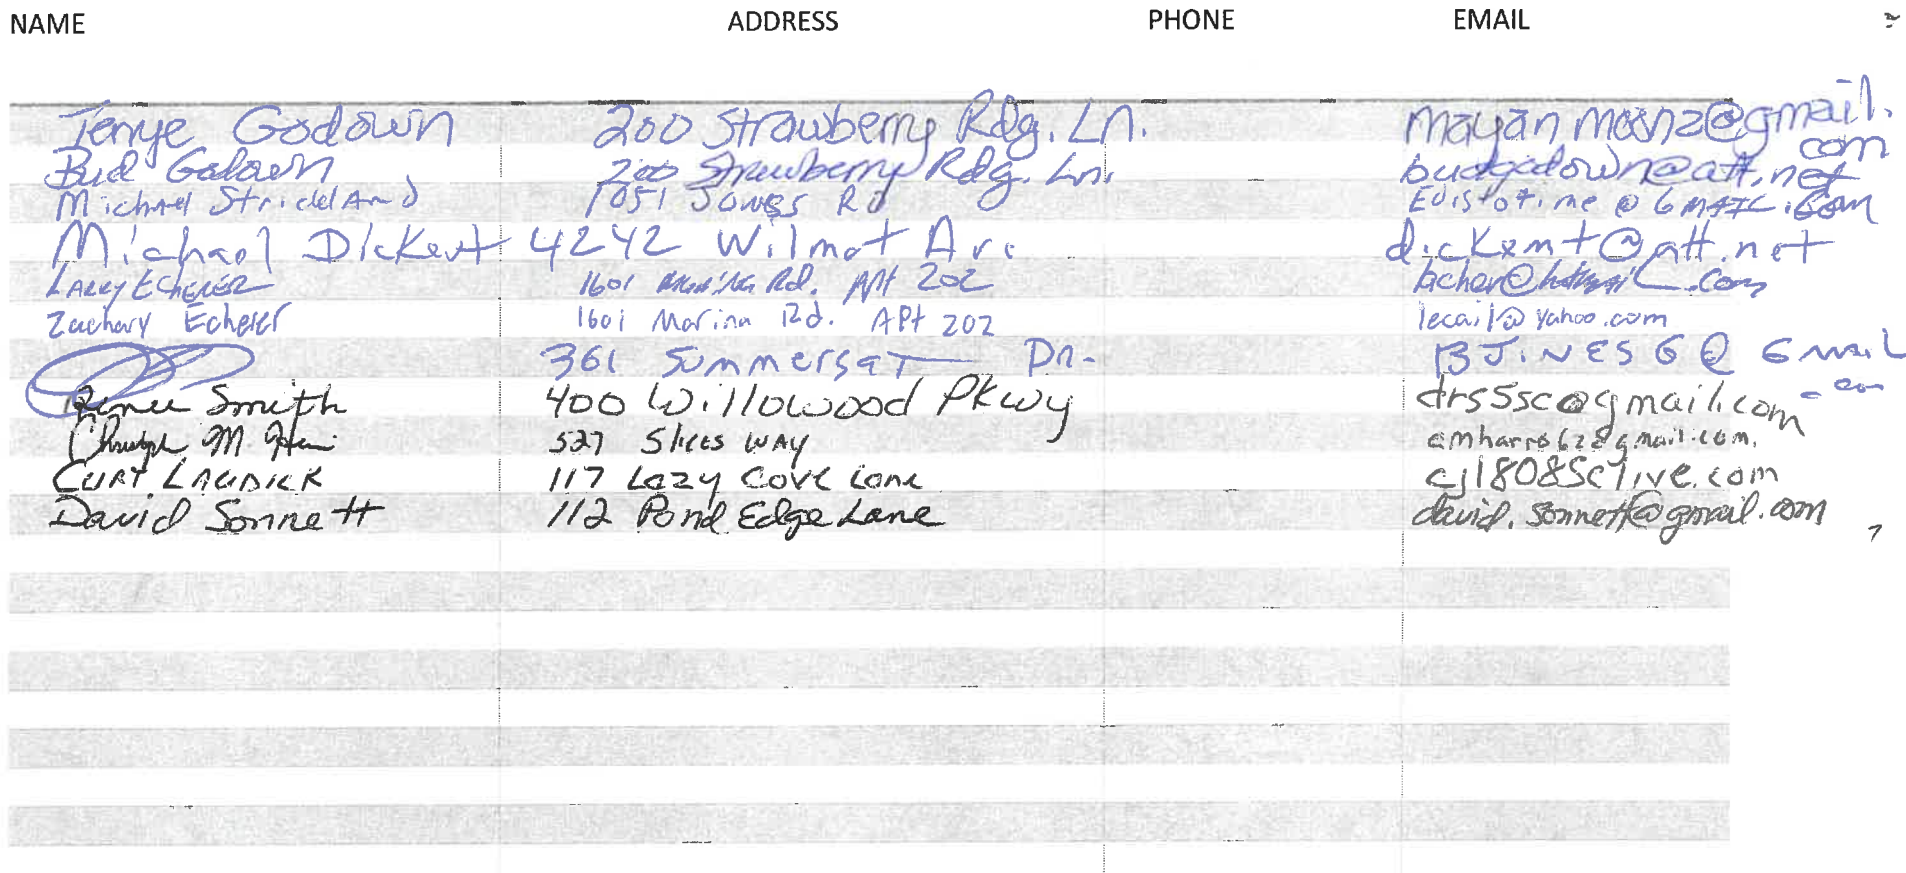 NAME ADDRESS PHONE EMAIL
Tenye Godown 200 Strawberry Rdg. Ln. mayanmoonz@gmail.com
Bud Godown 200 Strawberry Rdg. Ln. budgodown@att.net
Michael Strickland 1051 Jowers Rd Edistotime@GMAIL.com
Michael Dickert 4242 Wilmot Ave dickemt@att.net
LARRY ECHERER 1601 Marina Rd. Apt 202
Zachary Echerer 1601 Marina Rd. APt 202 lecail@yahoo.com
361 Summerset Dr. BJINES6@Gmail.com
Renee Smith 400 Willowood Pkwy drs5sc@gmail.com
M. 527 Slices WAY
CURT 117 Lazy Cove Lane
David Sonnett 112 Pond Edge Lane david.sonnett@gmail.com